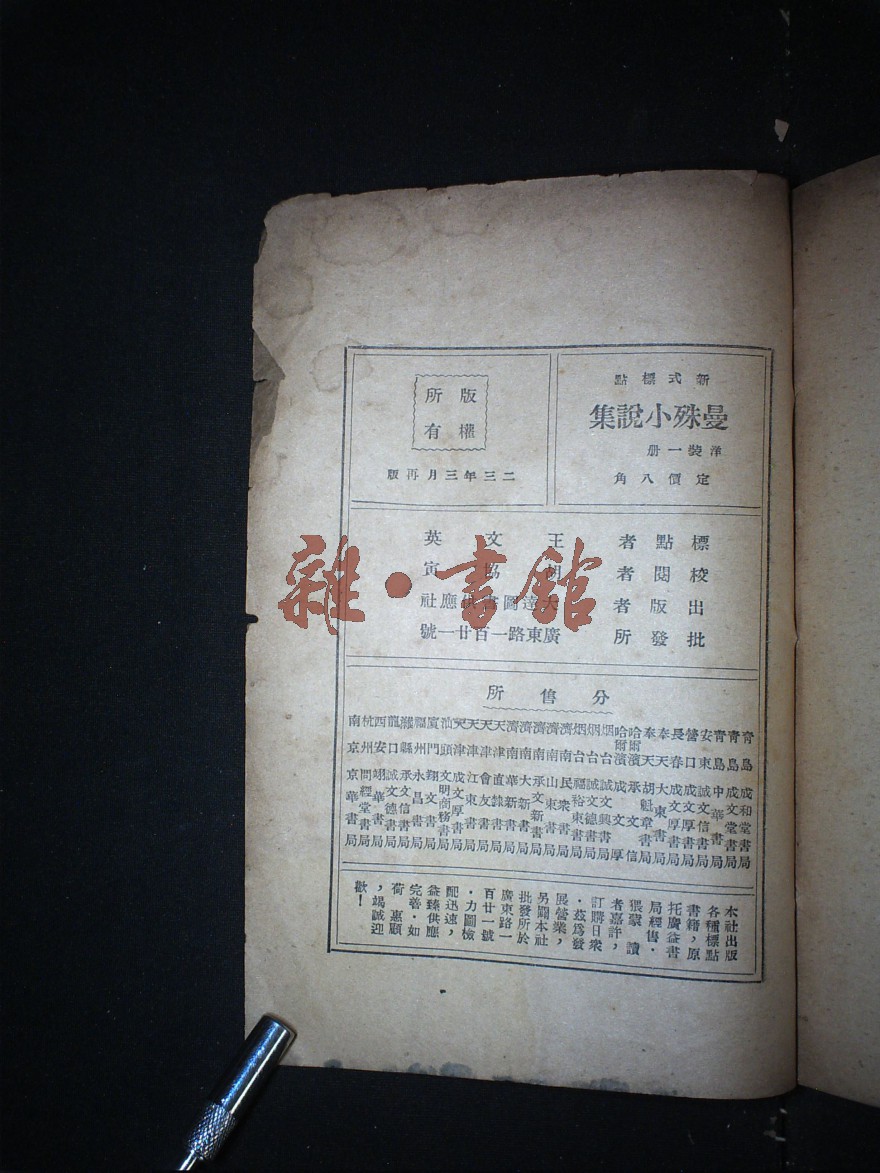 新式標點
曼殊小說集
洋裝一册
定價八角
版權
所有
二三年三月再版
標點者 王文英
校閱者 胡協寅
出版者 大達圖書供應社
批發所 廣東路一百廿一號
分售所
青島 成和堂書局
青島 成文堂書局
青島 中華書局
安東 誠文信書局
營口 成文厚書局
長春 成文厚書局
奉天 大東書局
奉天 胡魁章書局
哈爾濱 承文信
哈爾濱 成文厚
烟台 誠文興書局
烟台 誠文德書局
烟台 福裕東書局
濟南 民衆書局
濟南 山東書局
濟南 承文新書局
濟南 大新書局
濟南 華新書局
天津 直隸書局
天津 會友書局
天津 江東書局
汕頭 文明商務書局
廈門 翔文書局
福州 永昌書局
濰縣 承文信書局
龍口 誠文德書局
西安 翊華書局
杭州 問經堂書局
南京 京華書局
本社出版
各種標點
書籍，原
托廣益書
局經售．
猥蒙 讀
者嘉許，
訂購日衆
．茲爲發
展營業，
另闢本社
批發所於
廣東路一
百廿一號
．力圖檢
配迅速，
益臻供應
完善．如
荷 惠顧
，竭誠迎
歡！
雜·書館